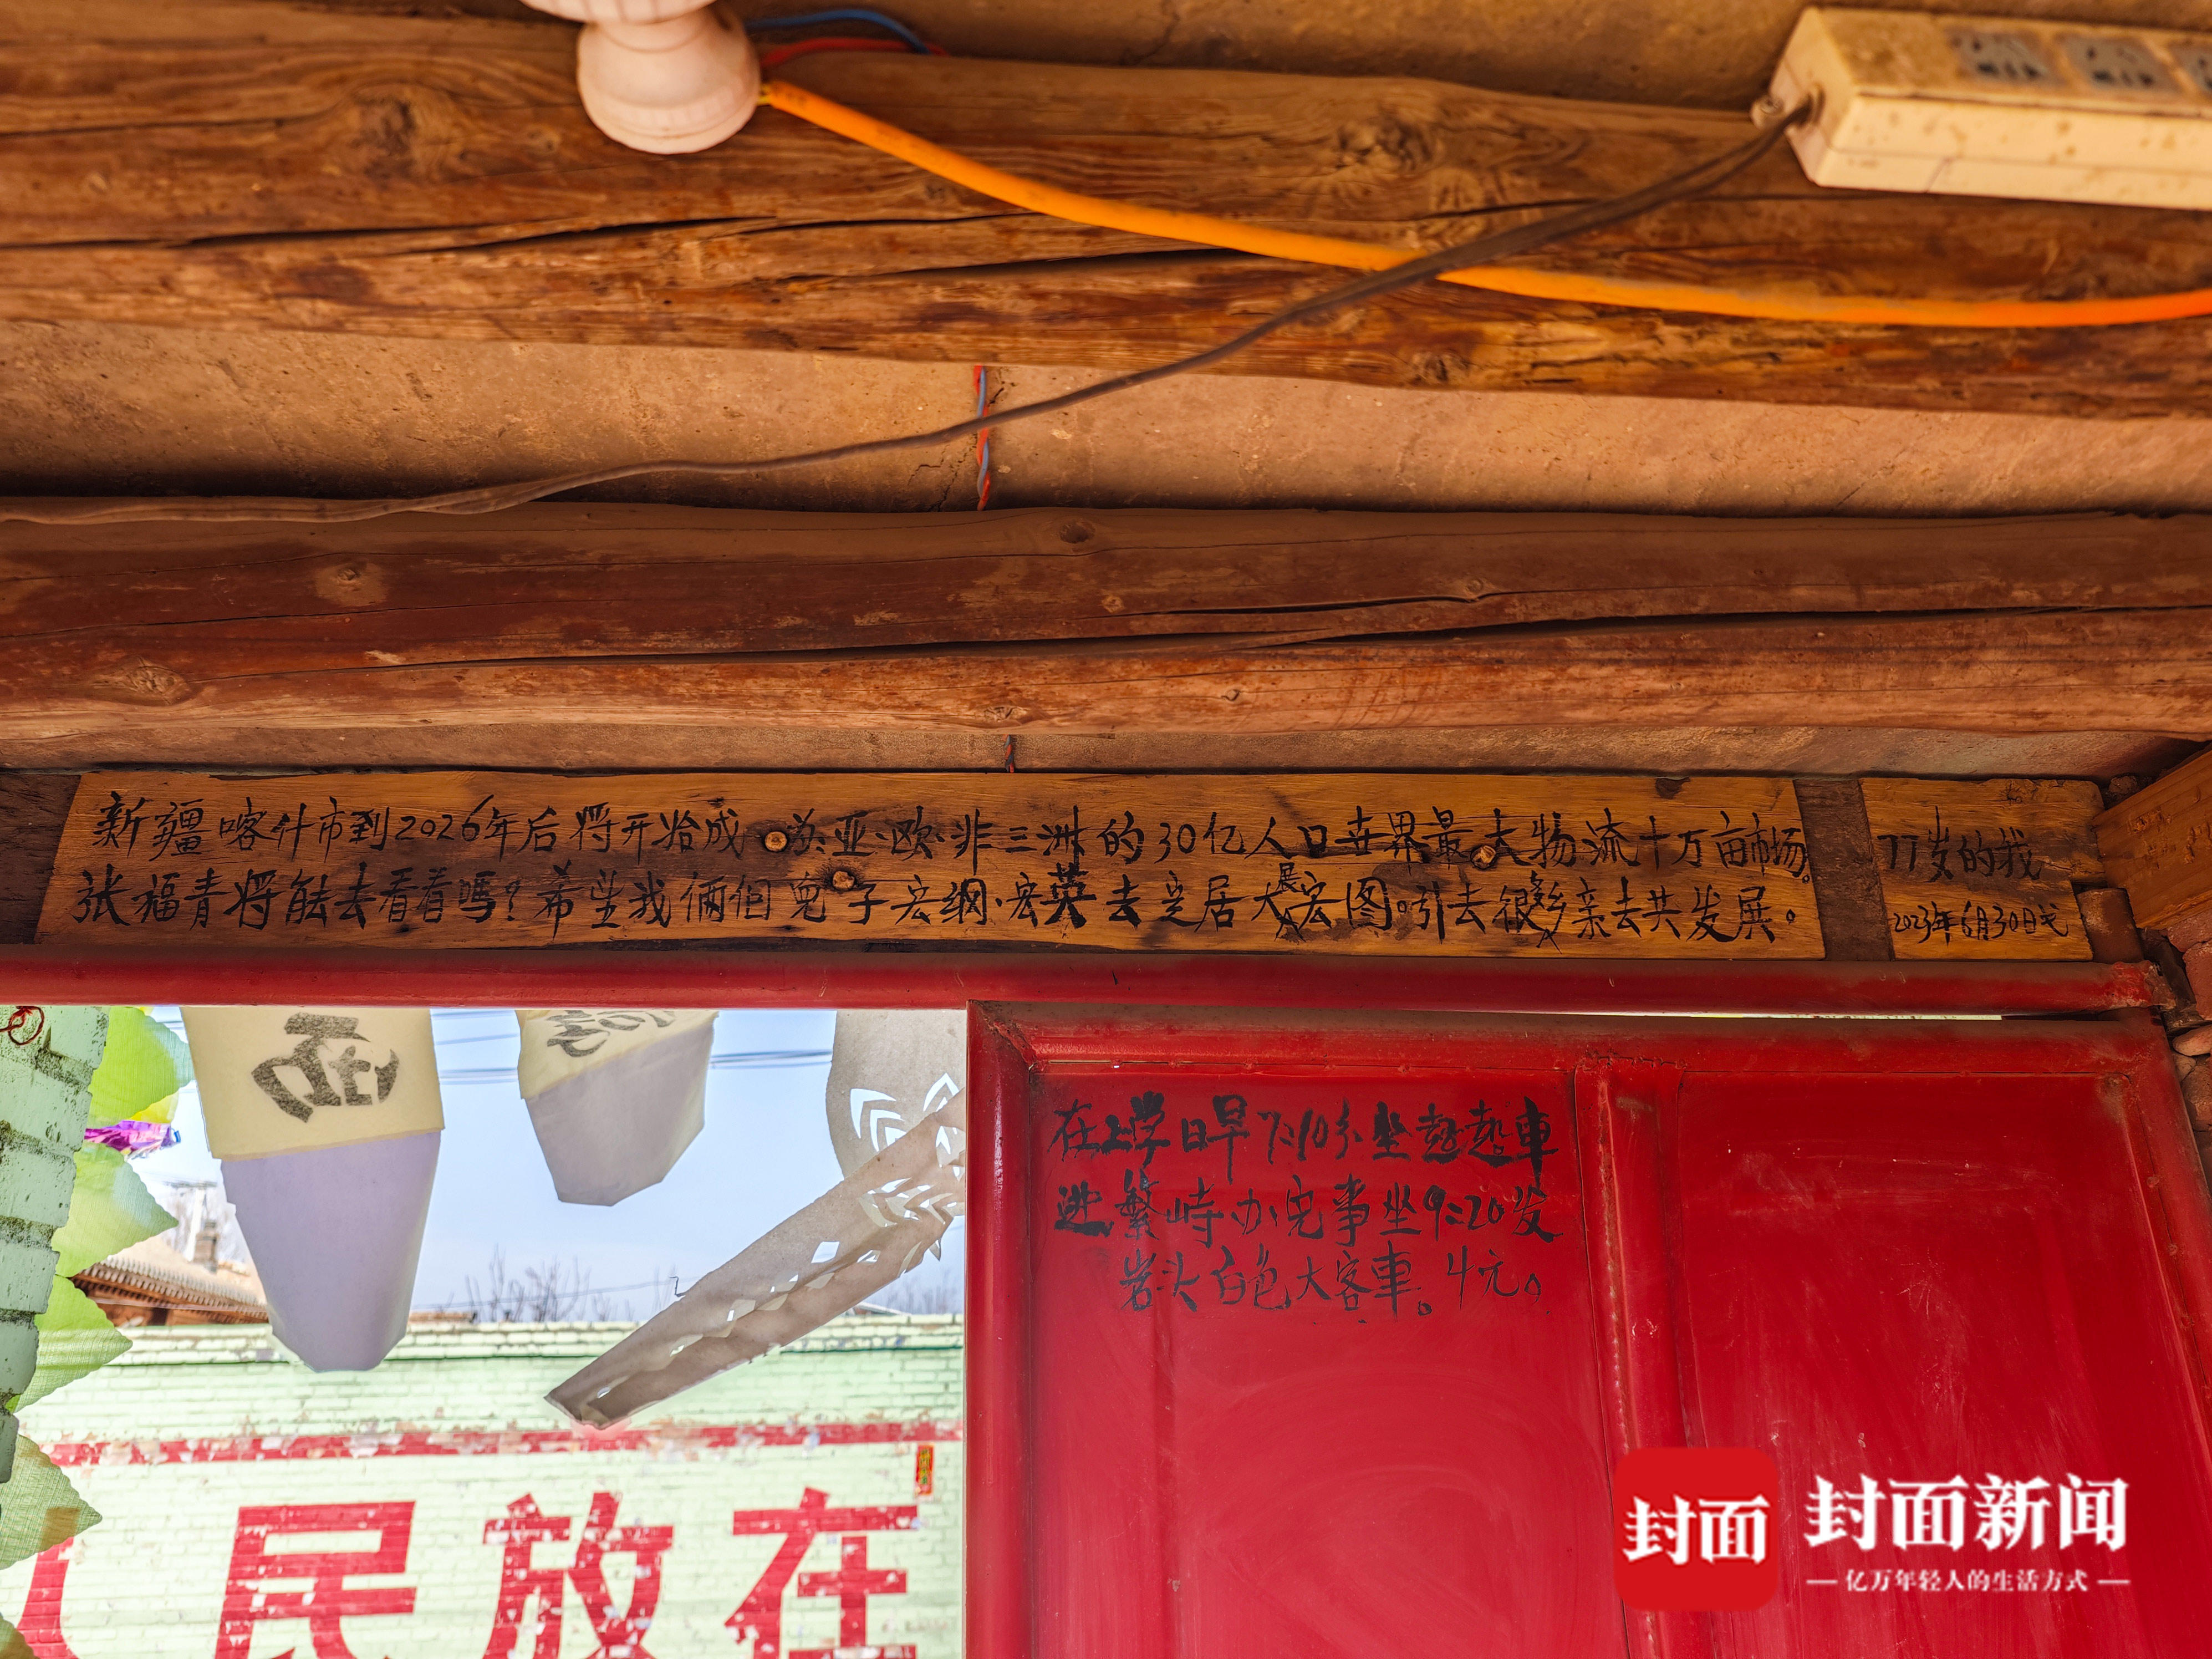 新疆喀什市到2026年后将开始成。为亚·欧·非三洲的30亿人口世界最大物流十万亩市场。
张福青将能去看看吗?希望我俩个儿子宏纲·宏英去定居大展宏图。引去很多乡亲去共发展。
77岁的我
2023年6月30日
在上学日早7:10分坐超超車
进繁峙办完事坐9:20发
岩头白色大客車。4元。
民放在
封面
封面新闻
亿万年轻人的生活方式